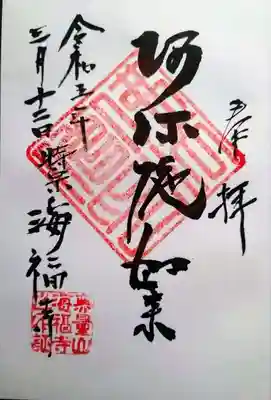 奉拝
阿弥陀如来
令和五年
三月十二日
海福寺
無量山
海福寺